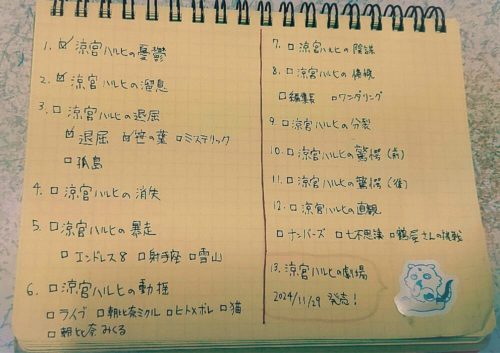 1. ☑ 涼宮ハルヒの憂鬱
2. ☑ 涼宮ハルヒの溜息
3. ☐ 涼宮ハルヒの退屈
☑ 退屈 ☑ 笹の葉 ☐ ミステリック
☐ 孤島
4. ☐ 涼宮ハルヒの消失
5. ☐ 涼宮ハルヒの暴走
☐ エンドレス8 ☐ 射手座 ☐ 雪山
6. ☐ 涼宮ハルヒの動揺
☐ ライブ ☐ 朝比奈ミクル ☐ ヒトメボレ ☐ 猫
☐ 朝比奈みくる
7. ☐ 涼宮ハルヒの陰謀
8. ☐ 涼宮ハルヒの憤慨
☐ 編集長 ☐ ワンダリング
9. ☐ 涼宮ハルヒの分裂
10. ☐ 涼宮ハルヒの驚愕(前)
11. ☐ 涼宮ハルヒの驚愕(後)
12. ☐ 涼宮ハルヒの直観
☐ ナンバーズ ☐ 七不思議 ☐ 鶴屋さんの挑戦
13. 涼宮ハルヒの劇場
2024/11/29 発売!